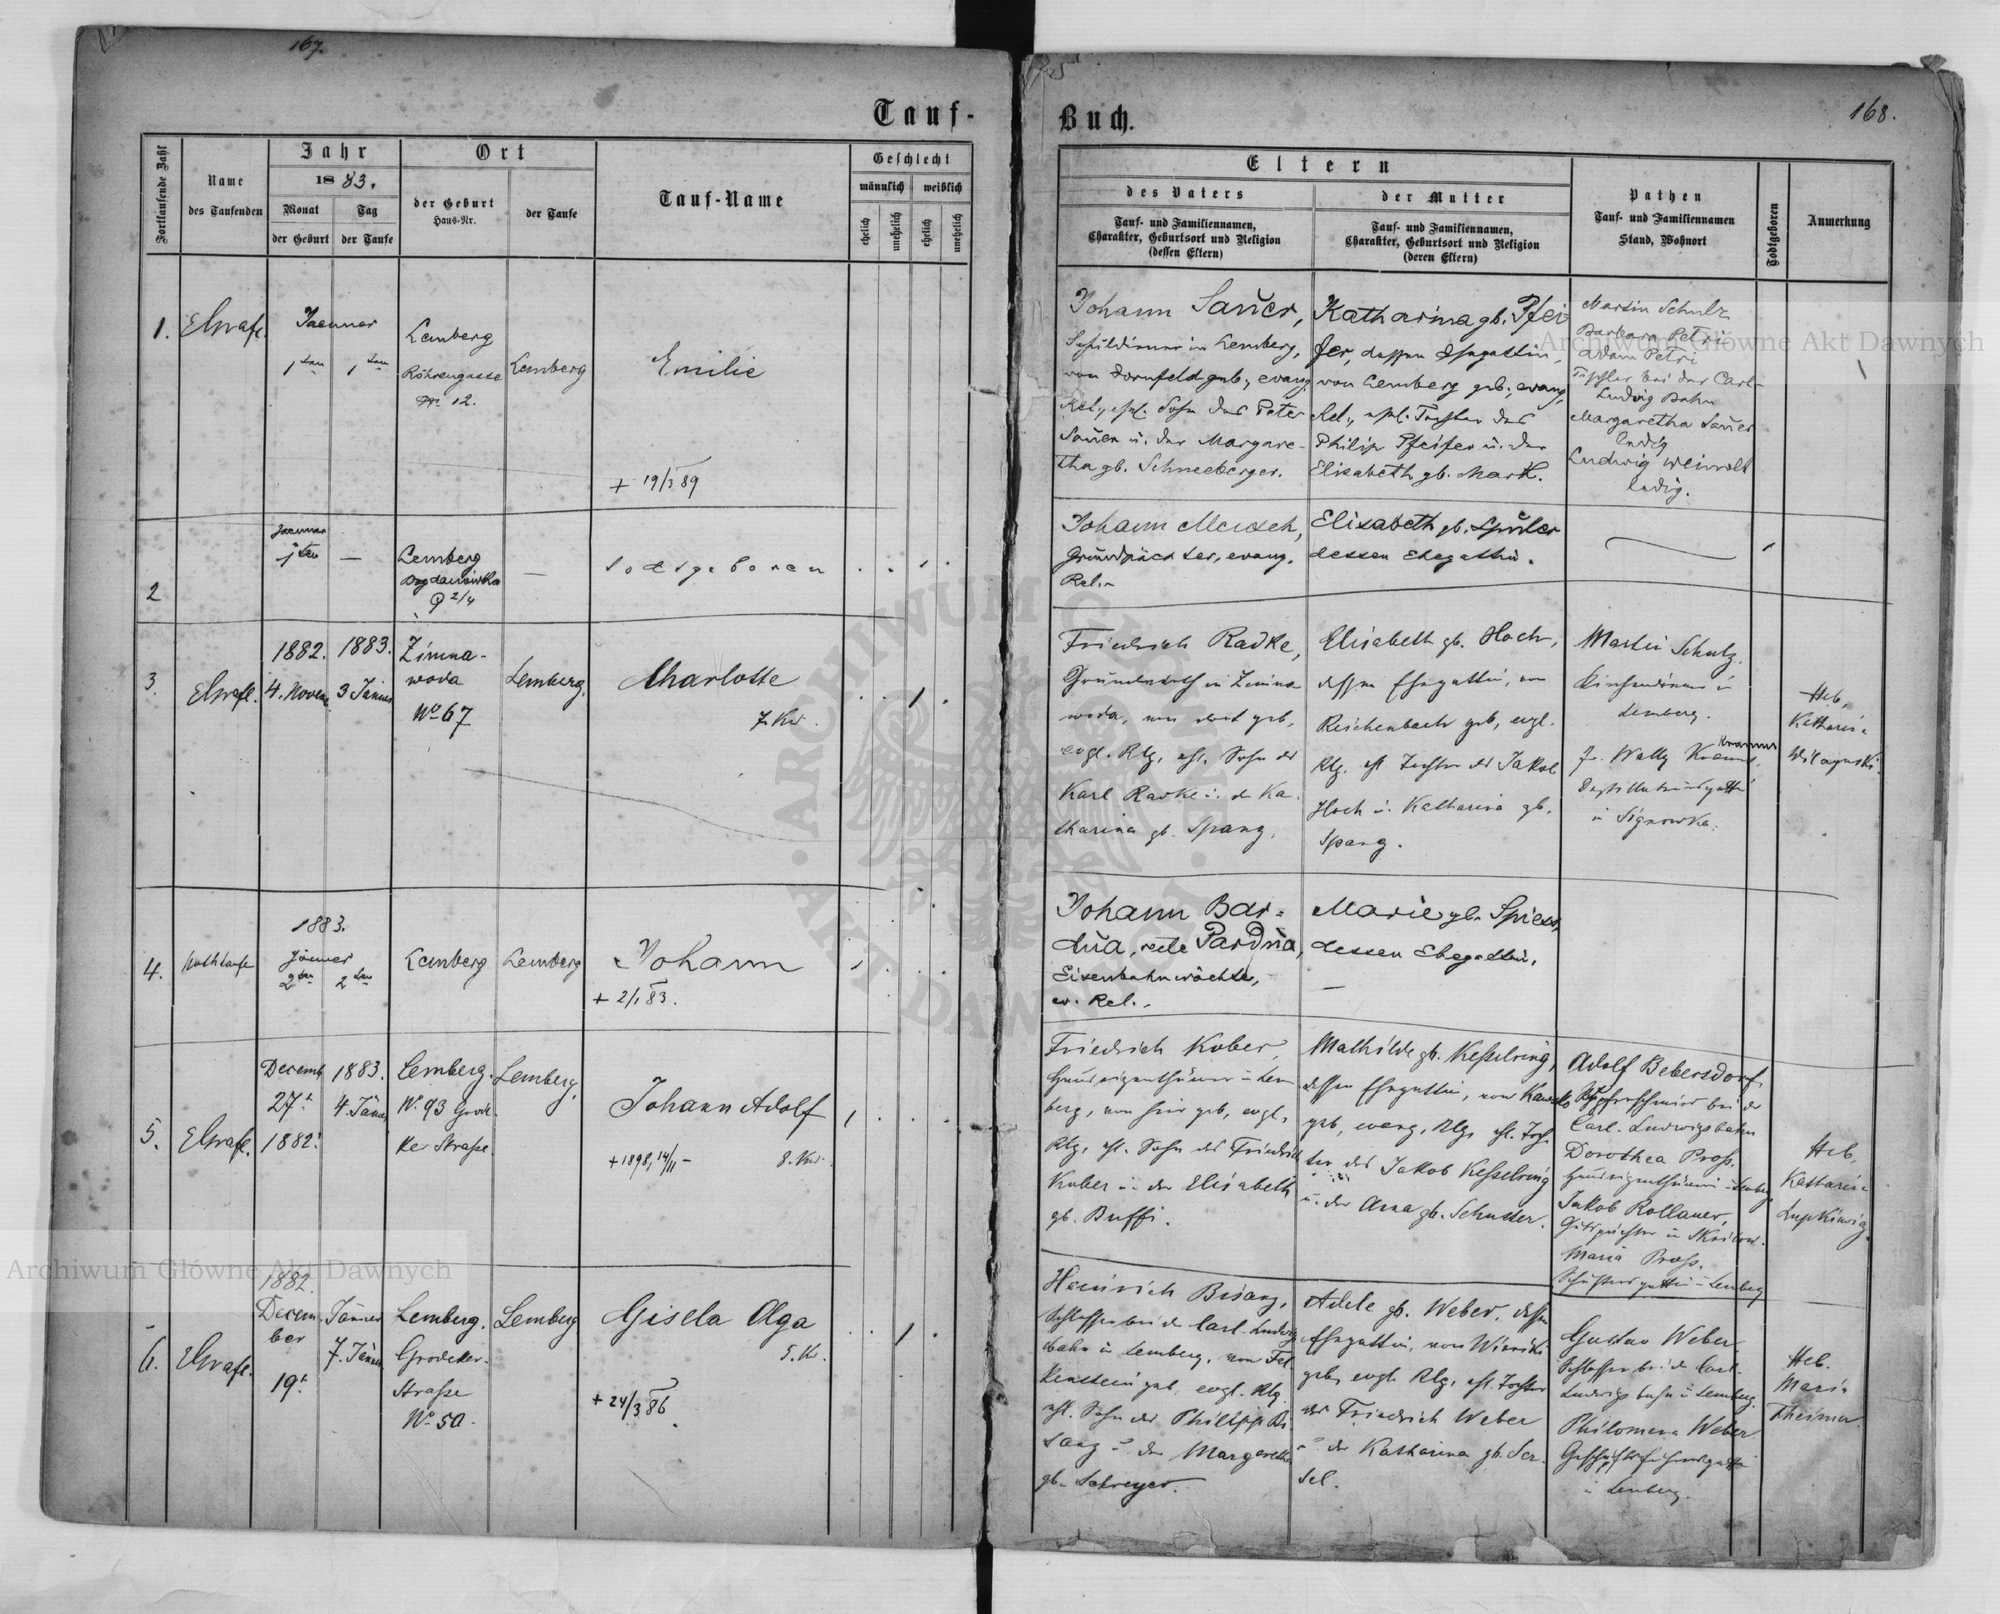 167.
Tauf-
Fortlaufende Zahl
Name
des Taufenden
Jahr
1883.
Monat
der Geburt
Tag
der Taufe
Ort
der Geburt
Haus-Nr.
der Taufe
Tauf-Name
Geschlecht
männlich
weiblich
ehelich
unehelich
ehelich
unehelich
1.
Jaenner
1ten
1ten
Lemberg
Röhrengasse
12.
Lemberg
Emilie
+ 19/3 89
2
Jaenner
1ten
—
Lemberg
Bogdanówka
9 2/4
—
Todtgeboren
3.
1882.
4. Novem.
1883.
3 Jänner
Zimna-
woda
No 67
Lemberg.
Charlotte
7. Kw.
4.
Nothtaufe
1883.
Jänner
2ten
2ten
Lemberg
Lemberg
Johann
+ 2/1 83.
5.
Decemb
27t
1882.
1883.
4. Jänner
Lemberg.
No. 93 Grode-
ker Straße.
Lemberg.
Johann Adolf
+ 1898, 14/11 –
8. Kw.
6.
1882.
Decem-
ber
19t
Jänner
7. Jänner
Lemberg.
Grodeker-
Straße
No 50.
Lemberg
Gisela Olga
5. Kw.
+ 24/3 86
Buch.
168.
Eltern
des Vaters
Tauf- und Familiennamen,
Charakter, Geburtsort und Religion
(dessen Eltern)
der Mutter
Tauf- und Familiennamen,
Charakter, Geburtsort und Religion
(deren Eltern)
Pathen
Tauf- und Familiennamen
Stand, Wohnort
Todtgeboren
Anmerkung
Johann Sauer,
Schuldiener in Lemberg,
von Dornfeld geb., evang.
Rel., ehl. Sohn des Peter
Sauer u. der Margare-
tha gb. Schneeberger.
Katharina gb. Pfei-
fer, dessen Ehegattin,
von Lemberg geb., evang.
Rel., ehl. Tochter des
Philip Pfeifer u. der
Elisabeth gb. Mark.
Martin Schulz
Barbara Petri
Adam Petri
Tischler bei der Carl-
Ludwig Bahn
Margaretha Sauer
ledig
Ludwig Weinvolt
ledig.
Johann Meusch,
Grundpächter, evang.
Rel.
Elisabeth gb. Spuler
dessen Ehegattin.
Friedrich Radke,
Grundwirth in Zimna
woda, von dort geb,
evgl. Rlg, ehl. Sohn des
Karl Radke u. d. Ka-
tharina gb. Spang.
Elisabeth gb. Hoch,
dessen Ehegattin, von
Reichenbach geb, evgl.
Rlg. ehl. Tochter des Jakob
Hoch u. Katharina gb.
Spang.
Martin Schulz.
Kirchendiener in
Lemberg.
Fr. Wally Kramer
in Signowka.
Heb.
Katharina
Johann Bar-
dua, recte Pardua,
Eisenbahnwächter,
ev. Rel.
Marie gb. Spiess,
dessen Ehegattin.
Friedrich Kober,
Hauseigenthümer in Lem-
berg, von hier geb, evgl.
Rlg, ehl. Sohn des Friedrich
Kober u. der Elisabeth
gb. Buffi.
Mathilde gb. Kesselring,
dessen Ehegattin, von
geb, evang. Rlg, ehl. Toch-
ter des Jakob Kesselring
u. der Anna gb. Schuster.
Adolf Bebersdorf
Kupferschmied bei der
Carl-Ludwigsbahn
Dorothea Pross.
Hauseigenthümerin in Lemberg
Jakob Rollauer,
Gutspächter in
Maria Pross.
in Lemberg
Heb.
Katharina
Heinrich Bisanz,
Schlosser bei d. Carl-Ludwig
bahn in Lemberg, von Fal-
kenstein geb, evgl. Rlg
ehl. Sohn des Philipp Bi-
sanz u. der Margaretha
gb. Schreyer.
Adele gb. Weber, dessen
Ehegattin, von
geb, evgl. Rlg, ehl. Tochter
des Friedrich Weber
u. der Katharina gb. Ser-
sel.
Gustav Weber
Schlosser bei d. Carl-
Ludwigsbahn in Lemberg.
Philomena Weber
Geschäftsführersgattin
in Lemberg.
Heb.
Maria
Theimer.
Archiwum Główne Akt Dawnych
Archiwum Główne Akt Dawnych
ARCHIWUM GŁÓWNE
AKT DAWNYCH